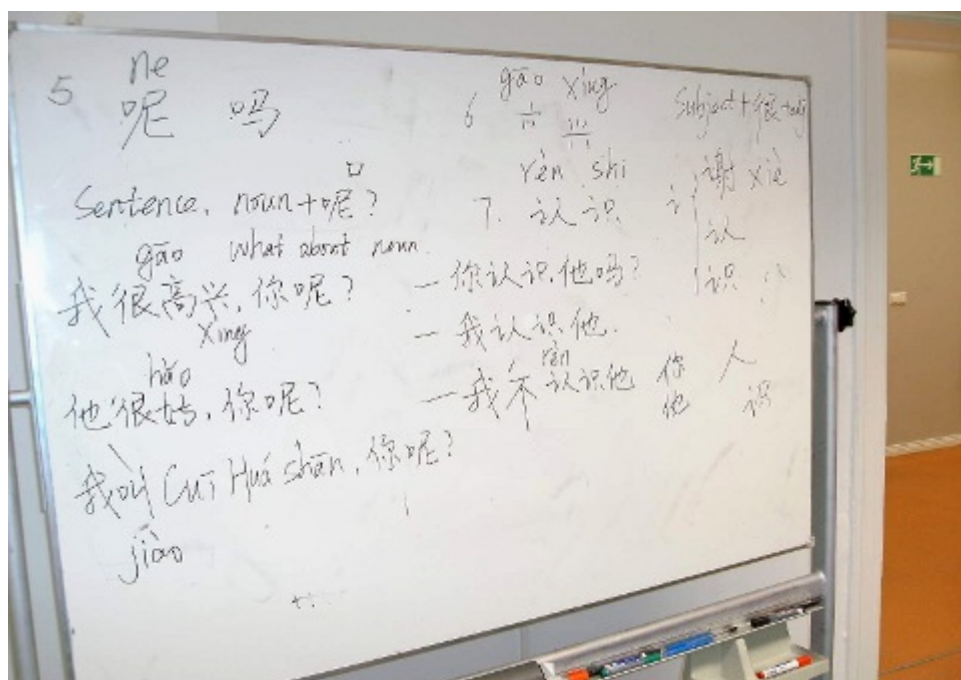 5 ne
呢 吗
Sentence, noun+呢?
gāo what about noun
我很高兴,你呢?
xìng
hǎo
他很好,你呢?
我叫 Cuī Huá shān,你呢?
jiào
6 gāo xìng
rèn shi
7. 认识
一你认识他吗?
一我认识他.
rèn
一我不认识他
Subject+很+adj
讠 谢 xiè
认
识
你 人
他 识